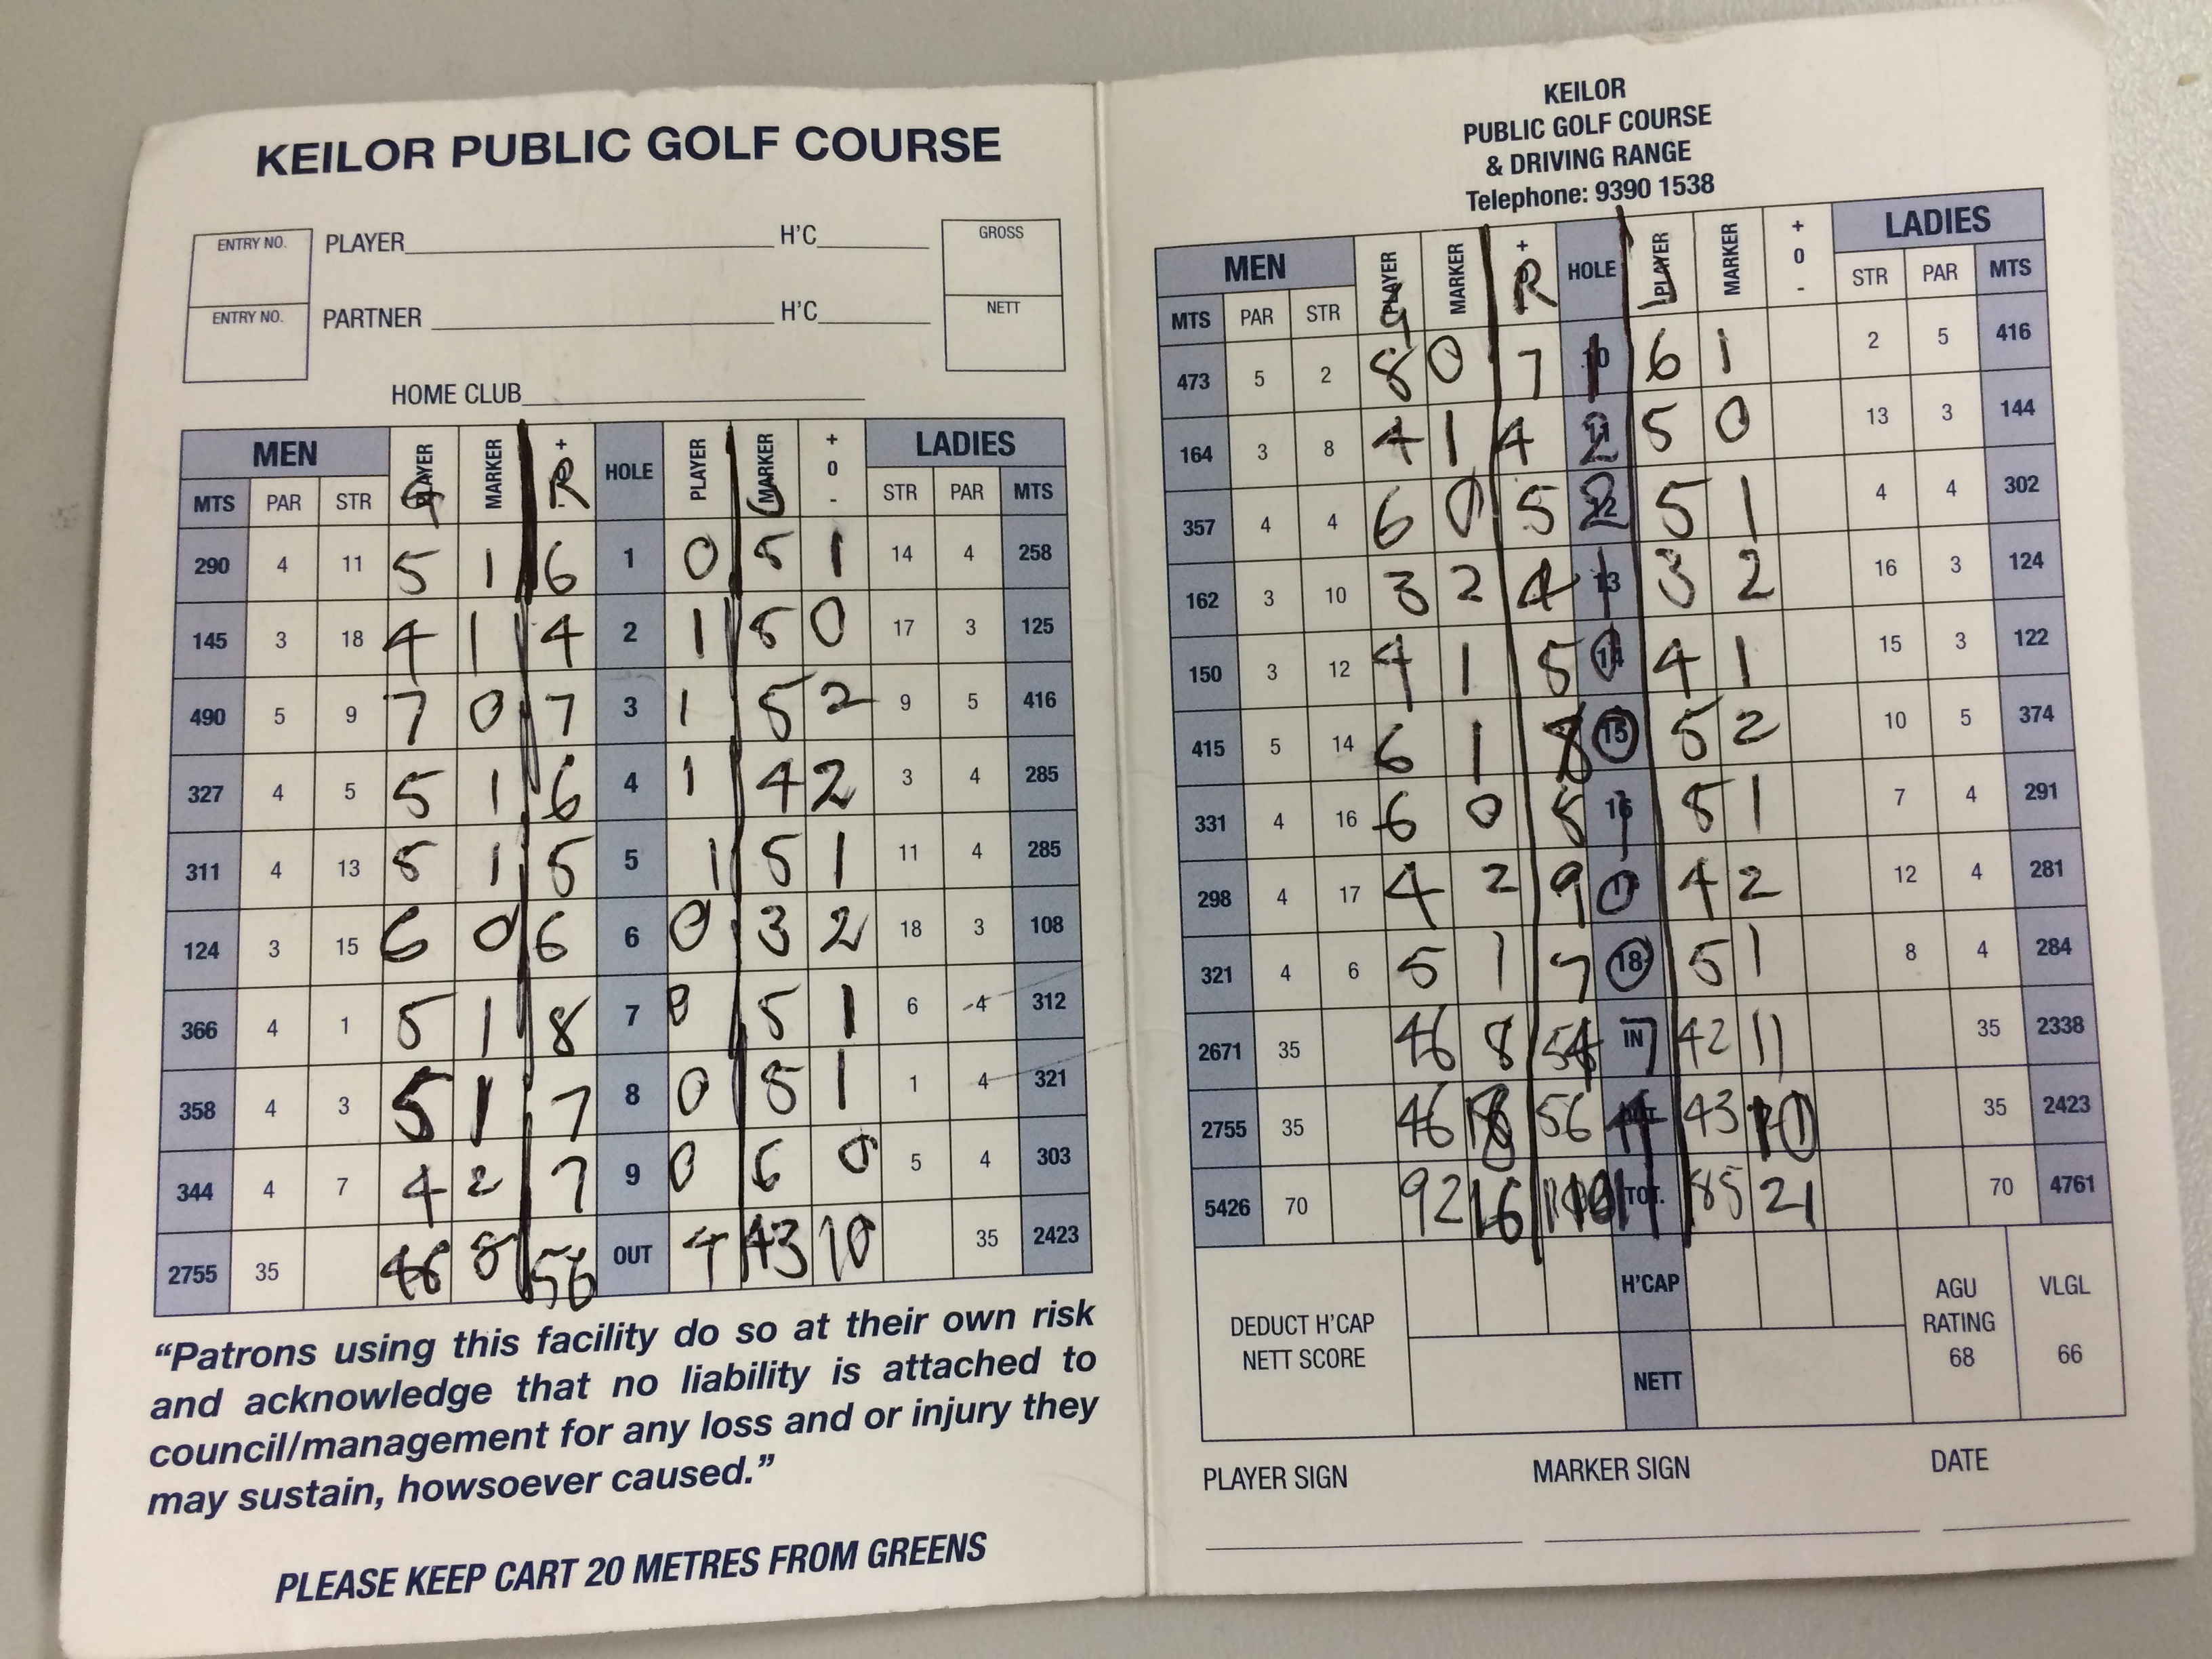 KEILOR PUBLIC GOLF COURSE
ENTRY NO. PLAYER H'C GROSS
ENTRY NO. PARTNER H'C NETT
HOME CLUB
MEN PLAYER MARKER + HOLE PLAYER MARKER + 0 - LADIES
MTS PAR STR G R L STR PAR MTS
290 4 11 5 1 6 1 0 5 1 14 4 258
145 3 18 4 1 4 2 1 5 0 17 3 125
490 5 9 7 0 7 3 1 5 2 9 5 416
327 4 5 5 1 6 4 1 4 2 3 4 285
311 4 13 5 1 5 5 1 5 1 11 4 285
124 3 15 6 0 6 6 0 3 2 18 3 108
366 4 1 5 1 8 7 0 5 1 6 4 312
358 4 3 5 1 7 8 0 5 1 1 4 321
344 4 7 4 2 7 9 0 6 0 5 4 303
2755 35 46 8 56 OUT 4 43 10 35 2423
“Patrons using this facility do so at their own risk
and acknowledge that no liability is attached to
council/management for any loss and or injury they
may sustain, howsoever caused.”
PLEASE KEEP CART 20 METRES FROM GREENS
KEILOR
PUBLIC GOLF COURSE
& DRIVING RANGE
Telephone: 9390 1538
MEN PLAYER MARKER + HOLE PLAYER MARKER + 0 - LADIES
MTS PAR STR G R L STR PAR MTS
473 5 2 8 0 7 10 1 6 1 2 5 416
164 3 8 4 1 4 11 2 5 0 13 3 144
357 4 4 6 0 5 12 2 5 1 4 4 302
162 3 10 3 2 4 13 1 3 2 16 3 124
150 3 12 4 1 5 14 0 4 1 15 3 122
415 5 14 6 1 8 15 0 5 2 10 5 374
331 4 16 6 0 5 16 1 5 1 7 4 291
298 4 17 4 2 9 17 0 4 2 12 4 281
321 4 6 5 1 7 18 0 5 1 8 4 284
2671 35 46 8 54 IN 7 42 11 35 2338
2755 35 46 8 56 4 43 10 35 2423
5426 70 92 16 TOT. 85 21 70 4761
DEDUCT H'CAP H'CAP AGU VLGL
NETT SCORE NETT RATING
68 66
PLAYER SIGN MARKER SIGN DATE